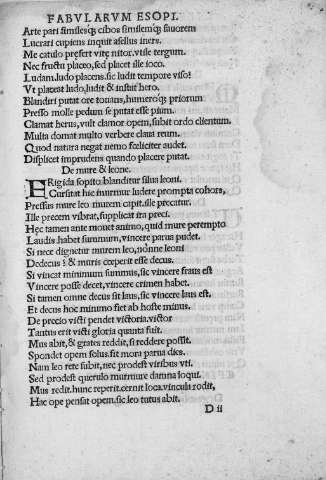 FABVLARVM ESOPI.
Arte pari similesq; cibos similemq; fauorem
Lucrari cupiens inquit asellus iners.
Me catulo præfert vitę nitor. vtile tergum.
Nec fructu placeo, sed placet ille ioco.
Ludam. ludo placens. sic ludit tempore viso!
Vt placeat ludo, ludit & instuit hero.
Blandiri putat ore tonans, humerosq; priorum
Presso molle pedum se putat esse pium.
Clamat herus, vult clamor opem, subit ordo clientum.
Multa domat multo verbere claua reum.
Quod natura negat nemo fœliciter audet.
Displicet imprudens quando placere putat.
De mure & leone.
FRigida sopito blanditur silua leoni.
Cursitat hic murmur ludere prompta cohors,
Pressus mure leo murem capit. ille precatur.
Ille precem vibrat, supplicat ira preci.
Hęc tamen ante mouet animo, quid mure perempto
Laudis habet summum, vincere parua pudet.
Si nece dignetur murem leo, nónne leoni
Dedecus? & muris cœperit esse decus.
Si vincat minimum summus, sic vincere fraus est
Vincere posse decet, vincere crimen habet.
Si tamen omne decus sit laus, sic vincere laus est.
Et decus hoc minimo fiet ab hoste minus.
De precio victi pendet victoria. victor
Tantus erit victi gloria quanta fuit.
Mus abit, & grates reddit, si reddere possit.
Spondet opem solus. fit mora parua dies.
Nam leo rete subit, nec prodest viribus vti.
Sed prodest querulo murmure damna loqui.
Mus redit. hunc reperit. cernit loca. vincula rodit,
Hac ope pensat opem. sic leo tutus abit.
D ii